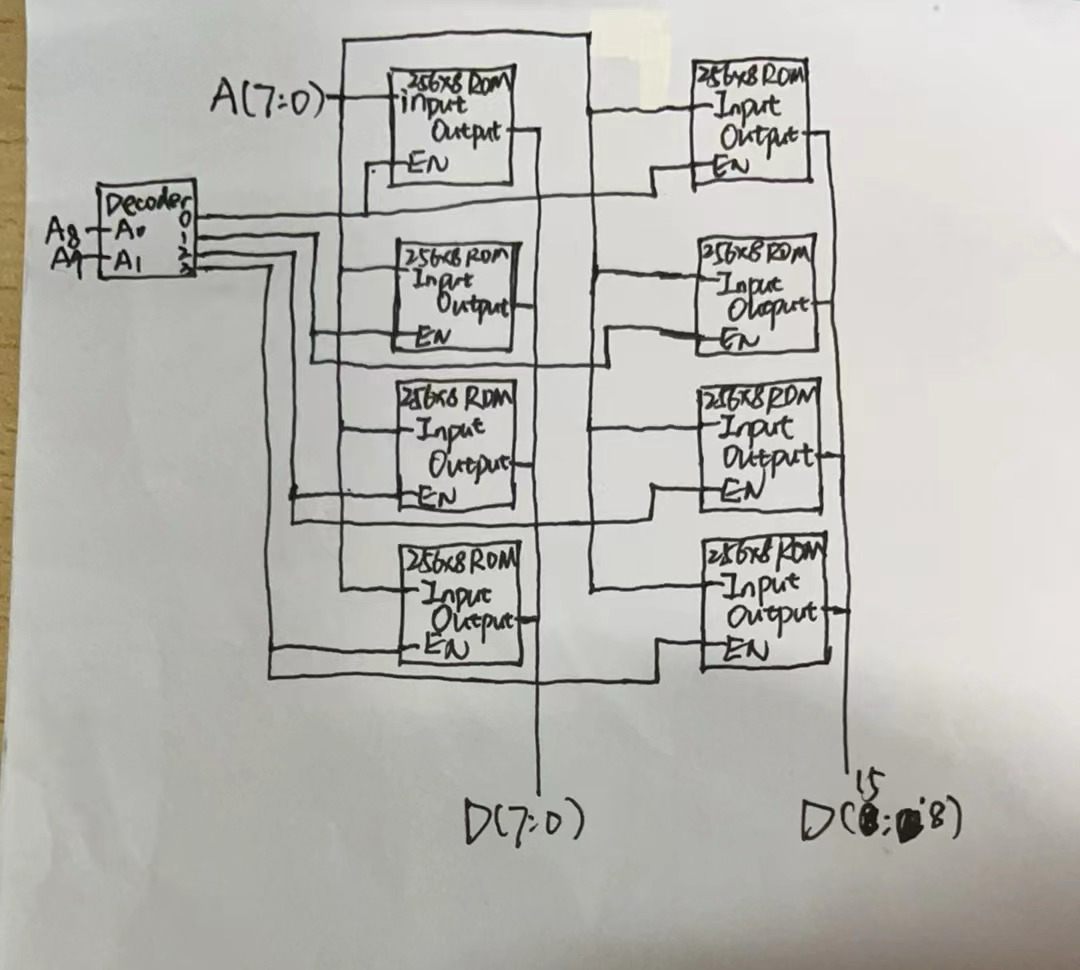 A(7:0)
256x8 ROM
input
Output
EN
256x8 ROM
Input
Output
EN
Decoder
0
A8 A0
1
2
A9 A1
3
256x8 ROM
Input
Output
EN
256x8 ROM
Input
Output
EN
256x8 ROM
Input
Output
EN
256x8 ROM
Input
Output
EN
256x8 ROM
Input
Output
EN
256x8 ROM
Input
Output
EN
D(7:0)
15
D( : 8)